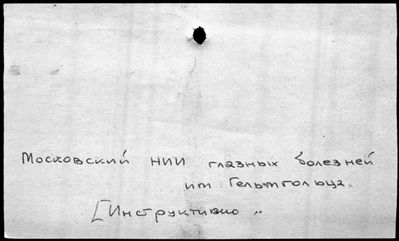 Московский НИИ глазных болезней
им. Гельмгольца.
[Инструктивно „